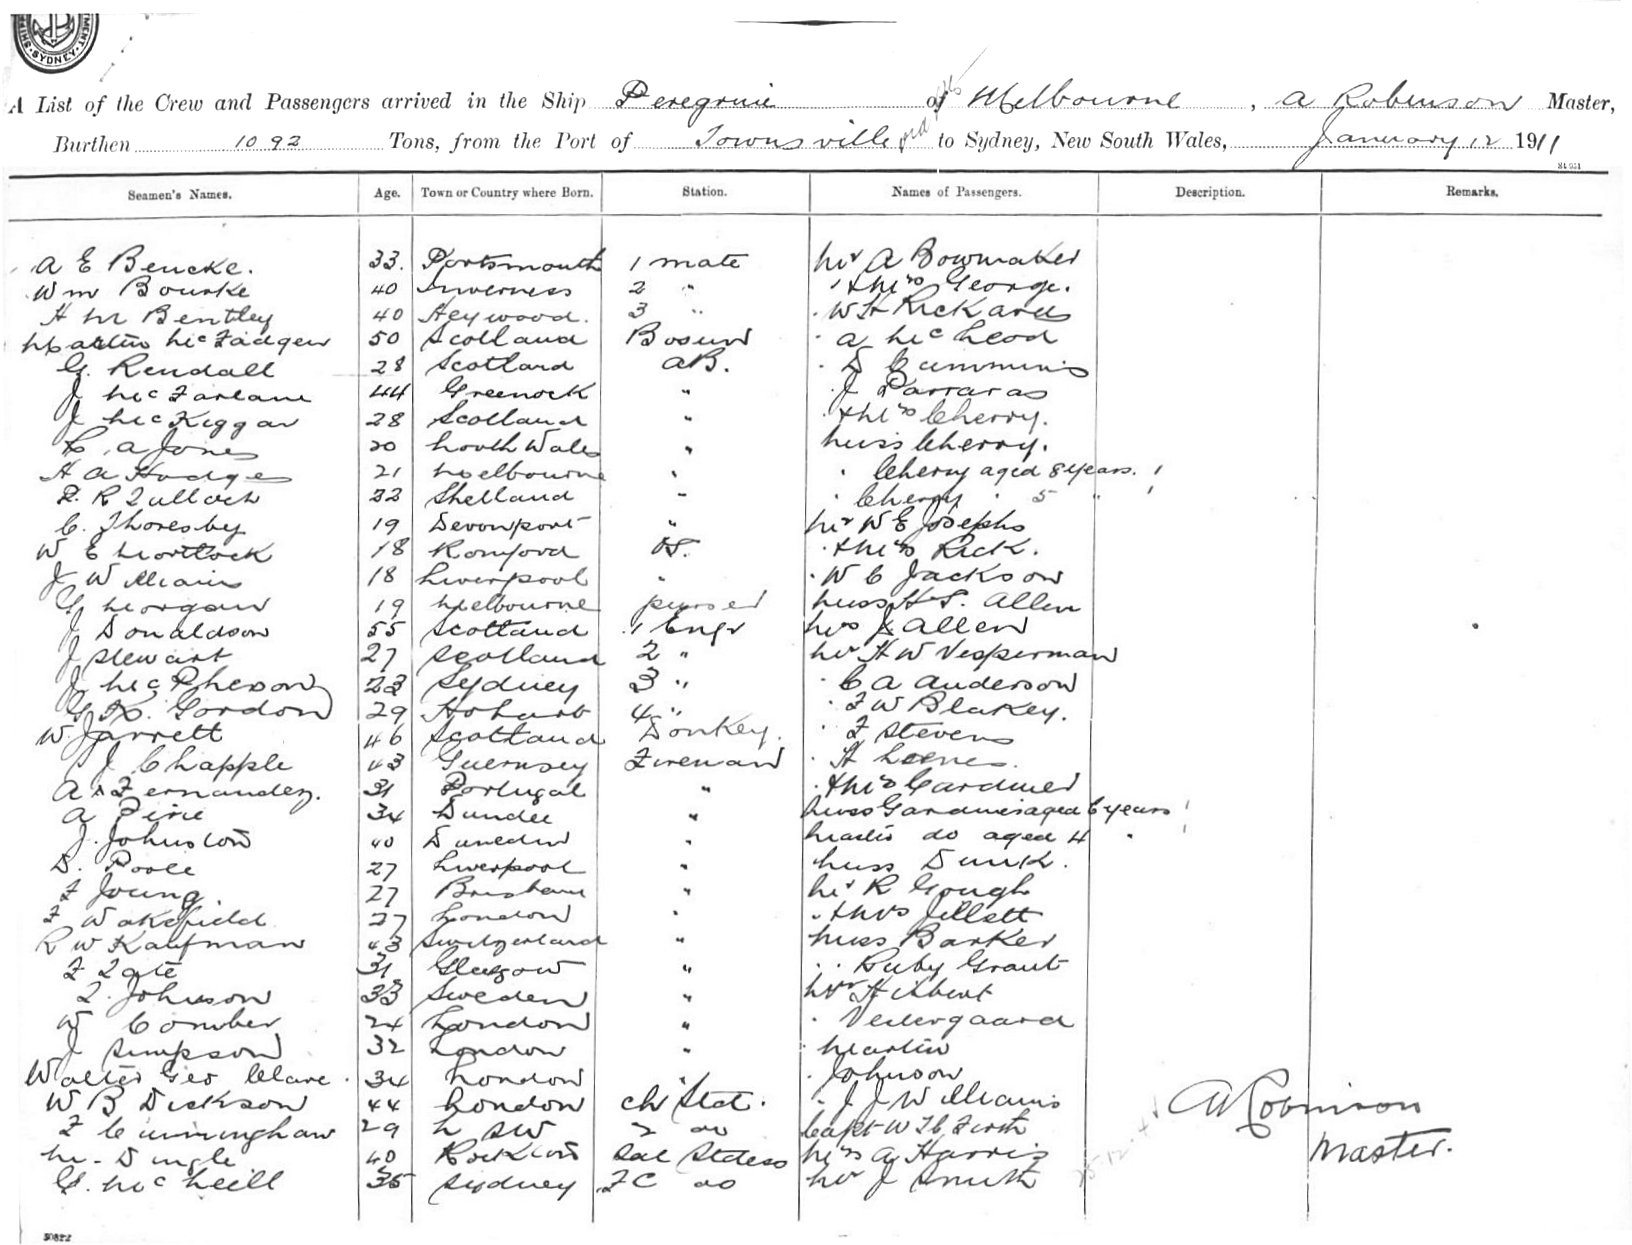 SYDNEY
A List of the Crew and Passengers arrived in the Ship Peregrine of Melbourne, A Robinson Master,
Burthen 1092 Tons, from the Port of Townsville to Sydney, New South Wales, January 12 1911
Seamen's Names. Age. Town or Country where Born. Station. Names of Passengers. Description. Remarks.
A E Bencke. 33. Portsmouth 1 mate Mr A Bowmaker
Wm Bourke 40 Inverness 2 " " & Mrs George.
H M Bentley 40 Heywood. 3 " W H Rickards
Martin McFadgen 50 Scotland Bosun A McLeod
G. Rendall 28 Scotland AB. D Cummins
J McFarlane 44 Greenock " J Parraras
J McKiggan 28 Scotland " & Mrs Cherry.
C. A Jones 20 North Wales " Miss Cherry.
H A Hodges 21 Melbourne " Cherry aged 8 years.
R Tulloch 22 Shetland " Cherry " 5 "
C. Thoresby 19 Devonport " Mr W E Josephs
W E Mortlock 18 Romford OS. & Mrs Rick.
J Williams 18 Liverpool " W C Jackson
G Morgan 19 Melbourne purser Miss H S. Allen
J Donaldson 55 Scotland 1 Engr Mrs Allen
J Stewart 27 Scotland 2 " Mr H W Vesperman
J McPherson 23 Sydney 3 " C A Anderson
G Gordon 29 Hobart 4 " F W Blakey.
W. Jarrett 46 Scotland Donkey. F Stevens
J Chapple 43 Guernsey Fireman H
A Fernandez. 31 Portugal " & Mrs Gardiner
A Pirie 34 Dundee " Miss Gardiner aged 6 years
J. Johnston 40 Dunedin " Master do aged 4 "
D. Poole 27 Liverpool " Miss Dunk.
F Young 27 Brisbane " Mr R Gough
F Wakefield 27 London " & Mrs Jellett
R W Kaufman 43 Switzerland " Miss Barker
F Tate 31 Glasgow " " Ruby Grant
T. Johnson 33 Sweden " Mr Hibbert
W Comber 24 London " Vestergaard
J Simpson 32 London " Martin
Walter Geo Clare. 34 London " Johnson
W B Dickson 44 London Ch Stad. J J Williams
F Cunningham 29 N SW 2 do Capt W Firth
M. Dingle 40 Sal Stdess Mrs A Harris
G. McNeill 35 Sydney FC do Mr J Smith
A Robinson
Master.